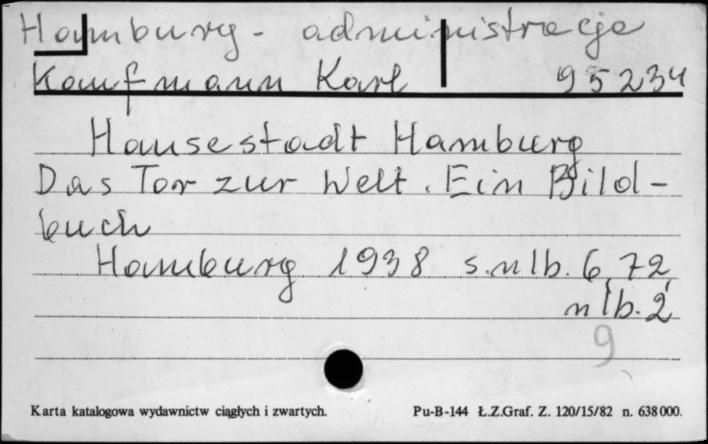 Hamburg - administracja
Kaufmann Karl 95234
Hansestadt Hamburg
Das Tor zur Welt. Ein Bild-
buch
Hamburg 1938 s. nlb. 6, 72,
nlb. 2
9
Karta katalogowa wydawnictw ciągłych i zwartych. Pu-B-144 Ł.Z.Graf. Z. 120/15/82 n. 638 000.